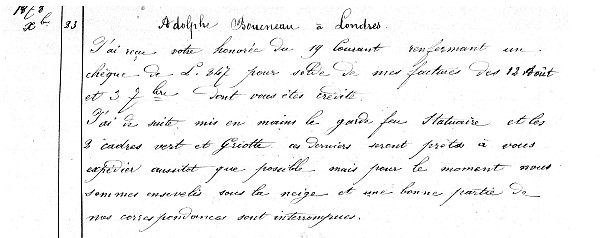 Xb 23 Adolphe Boueneau à Londres.
J'ai reçu votre honorée du 19 Courant renfermant un
chèque de L. 247 pour solde de mes factures des 12 Août
et 3 7bre dont vous êtes crédité.
J'ai de suite mis en mains le garde feu Statuaire et les
3 cadres vert et Griotte ces derniers seront prêts à vous
expédier aussitot que possible mais pour le moment nous
sommes ensevelis sous la neige et une bonne partie de
nos correspondances sont interrompues.